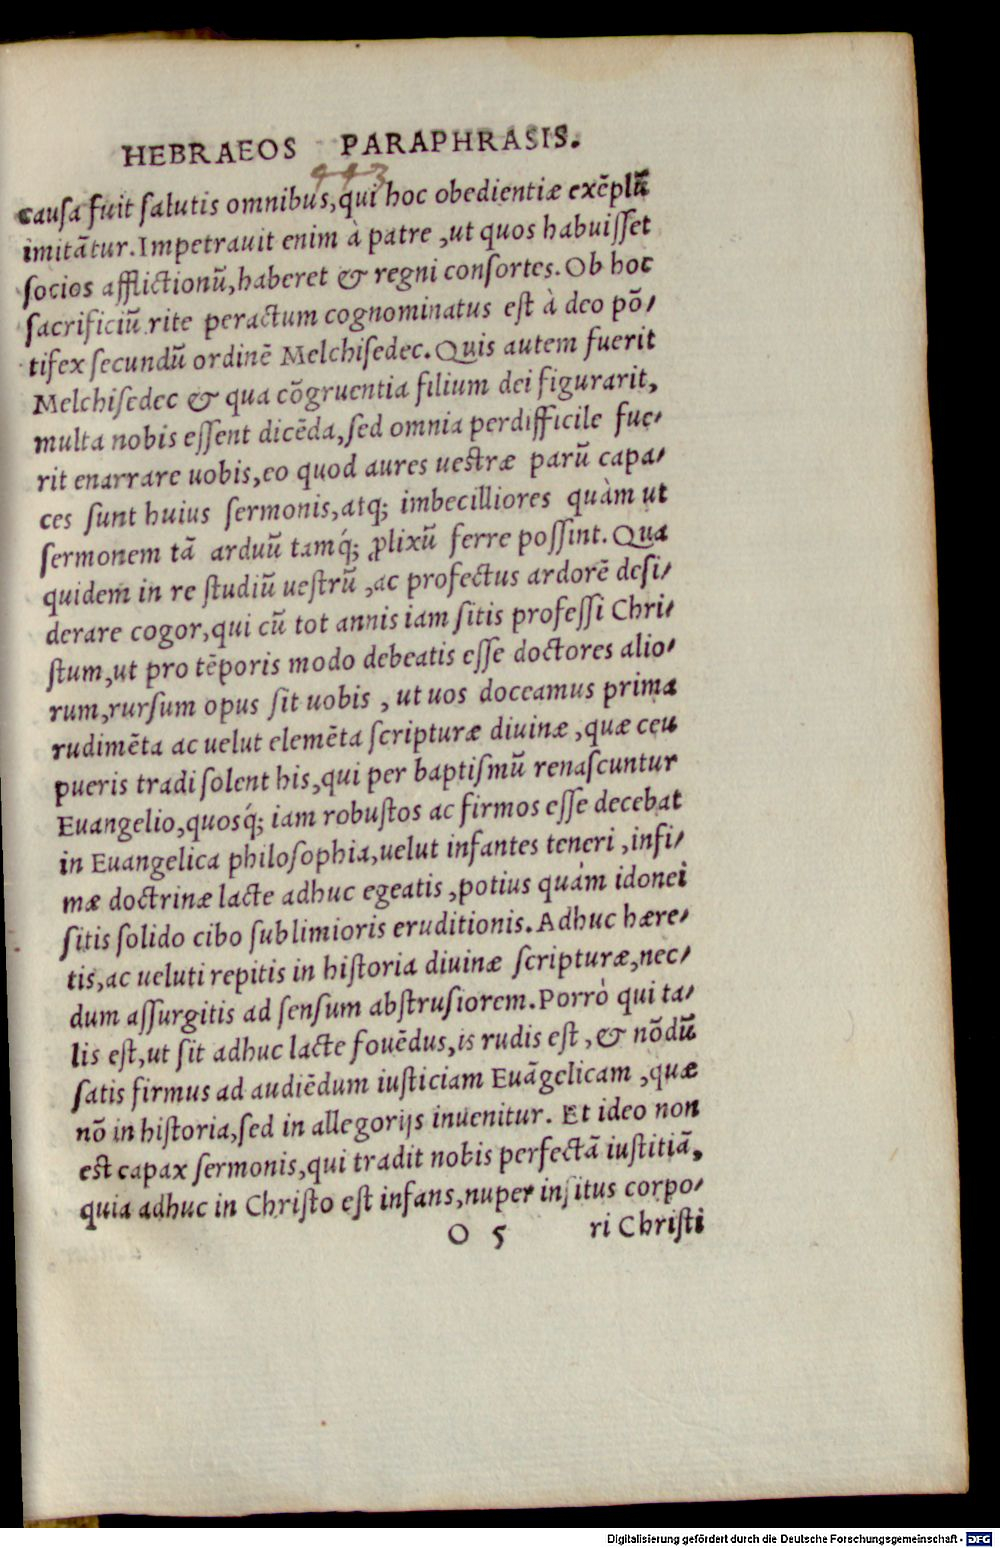 HEBRAEOS PARAPHRASIS.
443
causa fuit salutis omnibus,qui hoc obedientiæ exẽplũ
imitãtur.Impetrauit enim à patre ,ut quos habuisset
socios afflictionũ,haberet & regni consortes.Ob hoc
sacrificiũ rite peractum cognominatus est à deo põ/
tifex secundũ ordinẽ Melchisedec.Quis autem fuerit
Melchisedec & qua cõgruentia filium dei figurarit,
multa nobis essent dicẽda,sed omnia perdifficile fue/
rit enarrare uobis,eo quod aures uestræ parũ capa/
ces sunt huius sermonis,atq; imbecilliores quàm ut
sermonem tã arduũ tamq́; ꝓlixũ ferre possint.Qua
quidem in re studiũ uestrũ ,ac profectus ardorẽ desi/
derare cogor,qui cũ tot annis iam sitis professi Chri/
stum,ut pro tẽporis modo debeatis esse doctores alio/
rum,rursum opus sit uobis , ut uos doceamus prima
rudimẽta ac uelut elemẽta scripturæ diuinæ ,quæ ceu
pueris tradi solent his,qui per baptismũ renascuntur
Euangelio,quosq́; iam robustos ac firmos esse decebat
in Euangelica philosophia,uelut infantes teneri ,infi/
mæ doctrinæ lacte adhuc egeatis ,potius quàm idonei
sitis solido cibo sublimioris eruditionis.Adhuc hære/
tis,ac ueluti repitis in historia diuinæ scripturæ,nec/
dum assurgitis ad sensum abstrusiorem.Porrò qui ta/
lis est,ut sit adhuc lacte fouẽdus,is rudis est ,& nõdũ
satis firmus ad audiẽdum iusticiam Euãgelicam ,quæ
nõ in historia,sed in allegorijs inuenitur. Et ideo non
est capax sermonis,qui tradit nobis perfectã iustitiã,
quia adhuc in Christo est infans,nuper insitus corpo/
O 5 ri Christi
Digitalisierung gefördert durch die Deutsche Forschungsgemeinschaft - DFG